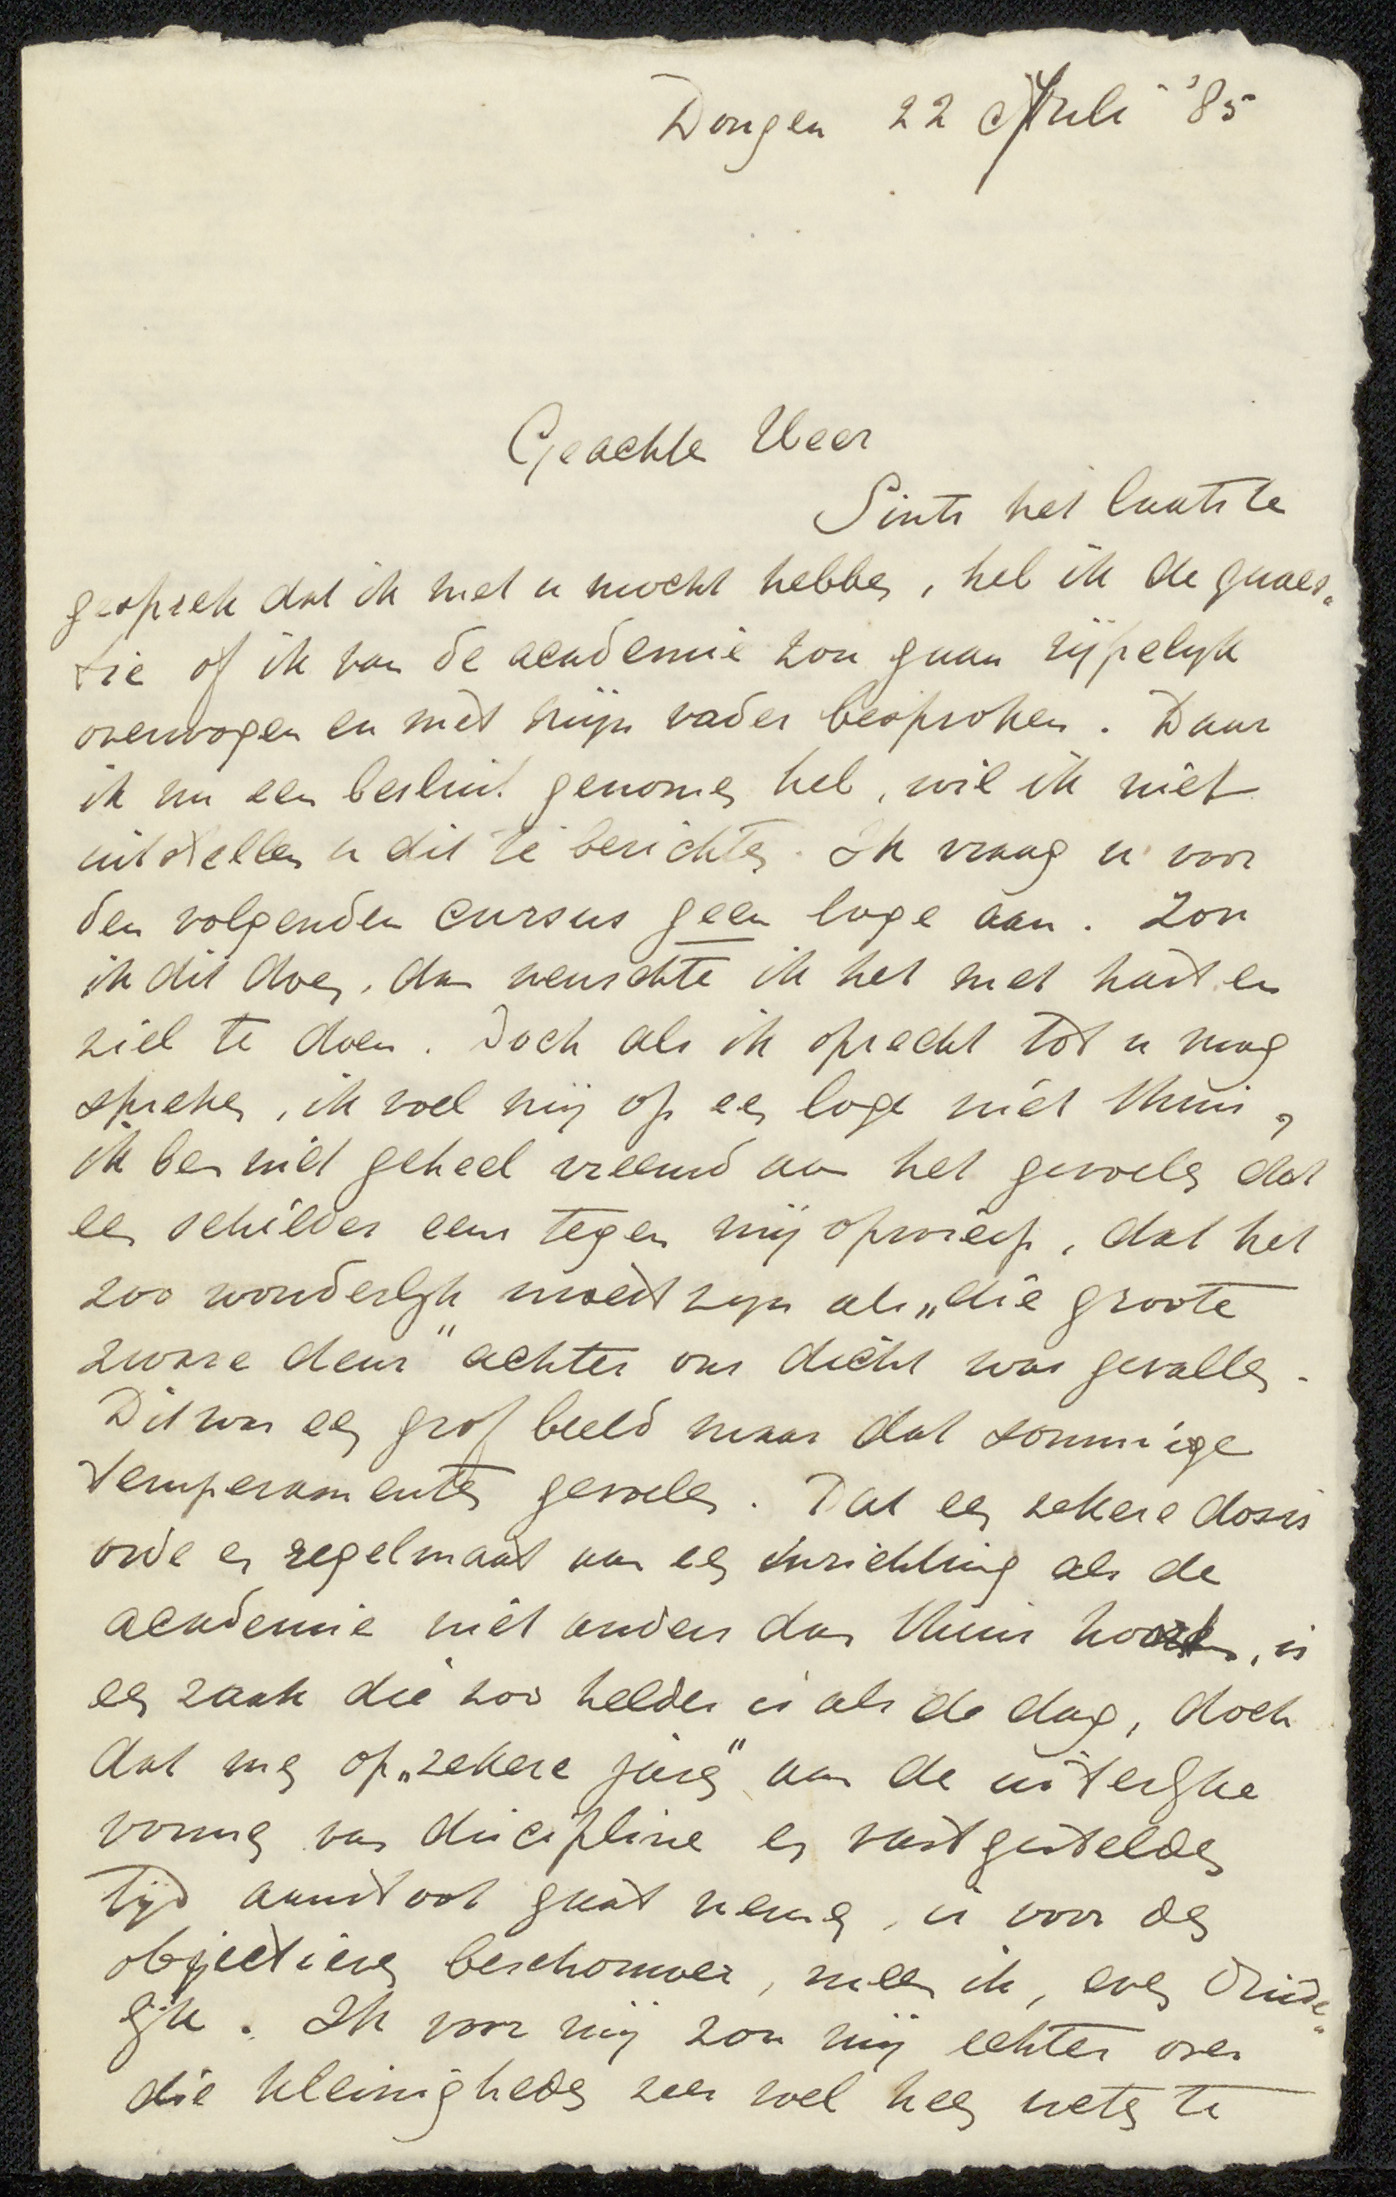 Dongen 22 April '85
Geachte Heer
Sints het laatste
gesprek dat ik met u mocht hebben, heb ik de quaes„
tie of ik van de academie zou gaan rijpelijk
overwogen en met mijn vader besproken. Daar
ik nu een besluit genomen heb, wil ik niet
uitstellen u dit te berichten. Ik vraag u voor
den volgenden cursus geen loge aan. Zou
ik dit doen, dan wenschte ik het met hart en
ziel te doen. Doch als ik oprecht tot u mag
spreken, ik voel mij op een loge niet thuis,
ik ben niet geheel vreemd aan het gevoelen dat
een schilder eens tegen mij opwierp, dat het
zoo wonderlijk moest zijn als „die groote
zware deur" achter ons dicht was gevallen.
Dit was een grof beeld maar dat sommige
temperamenten gevoelen. Dat een zekere dosis
orde en regelmaat aan een inrichting als de
academie niet anders dan thuis, is
een zaak die zoo helder is als de dag, doch
dat men op „zekere jaren" aan de uiterlijke
vormen van discipline en vastgestelden
tijd aanstoot gaat nemen, is voor den
objectieven beschouwer, meen ik, even duide„
lijk. Ik voor mij zou mij echter over
die kleinigheden zeer wel heen weten te